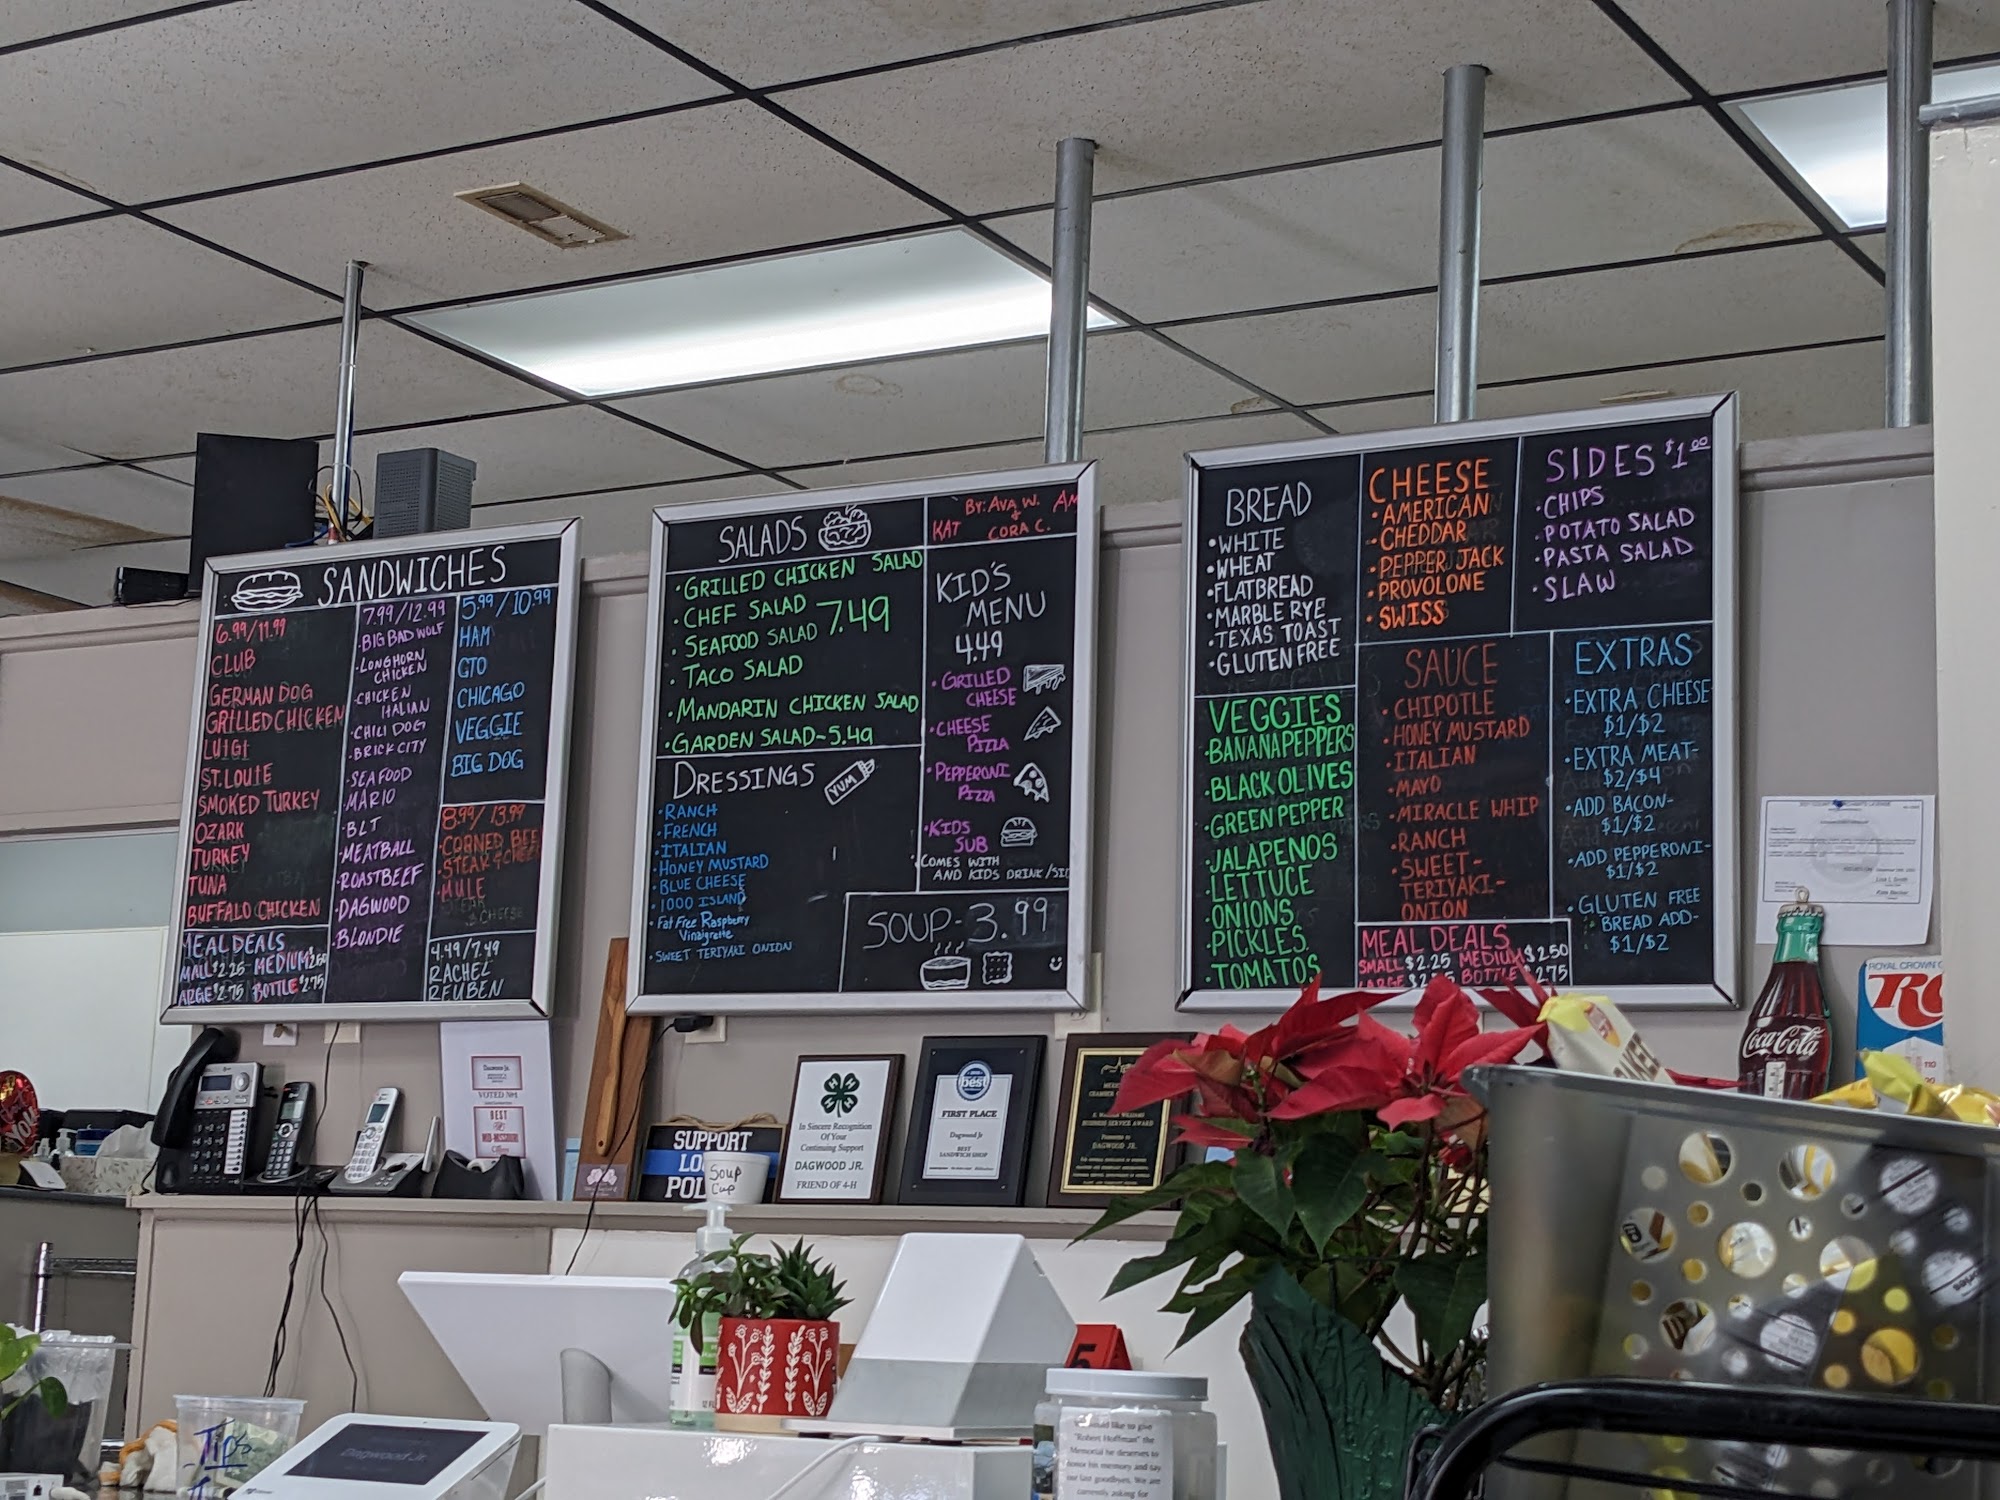 SANDWICHES
6.99/11.99
CLUB
GERMAN DOG
GRILLED CHICKEN
LUIGI
ST. LOUIE
SMOKED TURKEY
OZARK
TURKEY
TUNA
BUFFALO CHICKEN
MEAL DEALS
MALL $2.25 - MEDIUM $2.50
ARGE $2.75 BOTTLE $2.75
7.99/12.99
BIG BAD WOLF
·LONGHORN
CHICKEN
·CHICKEN
ITALIAN
·CHILI DOG
·BRICK CITY
·SEAFOOD
·MARIO
·BLT
·MEATBALL
·ROASTBEEF
·DAGWOOD
·BLONDIE
5.99/10.99
HAM
GTO
CHICAGO
VEGGIE
BIG DOG
8.99/13.99
CORNED BEEF
STEAK & CHEESE
MULE
4.99/7.49
RACHEL
REUBEN
SALADS
·GRILLED CHICKEN SALAD
·CHEF SALAD
·SEAFOOD SALAD 7.49
·TACO SALAD
·MANDARIN CHICKEN SALAD
·GARDEN SALAD-5.49
DRESSINGS
YUM
·RANCH
·FRENCH
·ITALIAN
·HONEY MUSTARD
·BLUE CHEESE
·1000 ISLAND
·Fat Free Raspberry
Vinaigrette
·SWEET TERIYAKI ONION
BY: AVA W.
KAT & CORA C.
KID'S
MENU
4.49
·GRILLED
CHEESE
·CHEESE
PIZZA
·PEPPERONI
PIZZA
·KIDS
SUB
·COMES WITH
AND KIDS DRINK/SIDE
SOUP-3.99
BREAD
·WHITE
·WHEAT
·FLATBREAD
·MARBLE RYE
·TEXAS TOAST
·GLUTEN FREE
VEGGIES
·BANANA PEPPERS
·BLACK OLIVES
·GREEN PEPPER
·JALAPENOS
·LETTUCE
·ONIONS
·PICKLES
·TOMATOS
CHEESE
·AMERICAN
·CHEDDAR
·PEPPER JACK
·PROVOLONE
·SWISS
SAUCE
·CHIPOTLE
·HONEY MUSTARD
·ITALIAN
·MAYO
·MIRACLE WHIP
·RANCH
·SWEET-
TERIYAKI-
ONION
MEAL DEALS
SMALL $2.25 MEDIUM $2.50
LARGE $2.75 BOTTLE $2.75
SIDES $1.00
·CHIPS
·POTATO SALAD
·PASTA SALAD
·SLAW
EXTRAS
·EXTRA CHEESE
$1/$2
·EXTRA MEAT-
$2/$4
·ADD BACON-
$1/$2
·ADD PEPPERONI-
$1/$2
·GLUTEN FREE
BREAD ADD-
$1/$2
Coca-Cola
ROYAL CROWN
RC
VOTED No1
BEST
SUPPORT
LO
POL
Soup
Cup
In Sincere Recognition
Of Your
Continuing Support
DAGWOOD JR.
FRIEND OF 4-H
best
FIRST PLACE
Dagwood Jr
BEST
SANDWICH SHOP
BUSINESS SERVICE AWARD
DAGWOOD JR.
Tips
Dagwood Jr.
5
would like to give
"Robert Hoffman" the
Memorial he deserves to
honor his memory and say
our last goodbyes. We are
currently asking for